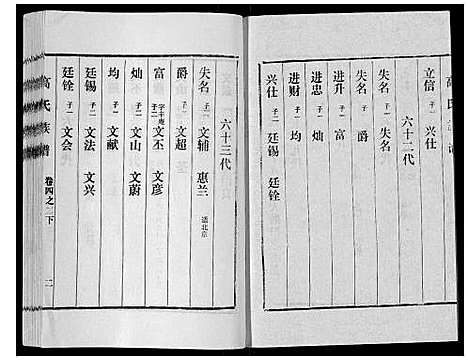 立信 子一 兴仕
六十二代
失名 子一 失名
失名 子一 爵
进升 子一 富
进忠 子一 灿
进财 子一 均
兴仕 子二 廷锡 廷铨
六十三代
失名 子二 文辅 惠兰 适北京
爵 子一 文超
富 字丰庵 子二 文丕 文彦
灿 子二 文山 文蔚
均 子一 文献
廷锡 子二 文法 文兴
廷铨 子一 文会
高氏族谱 卷四之二下 二